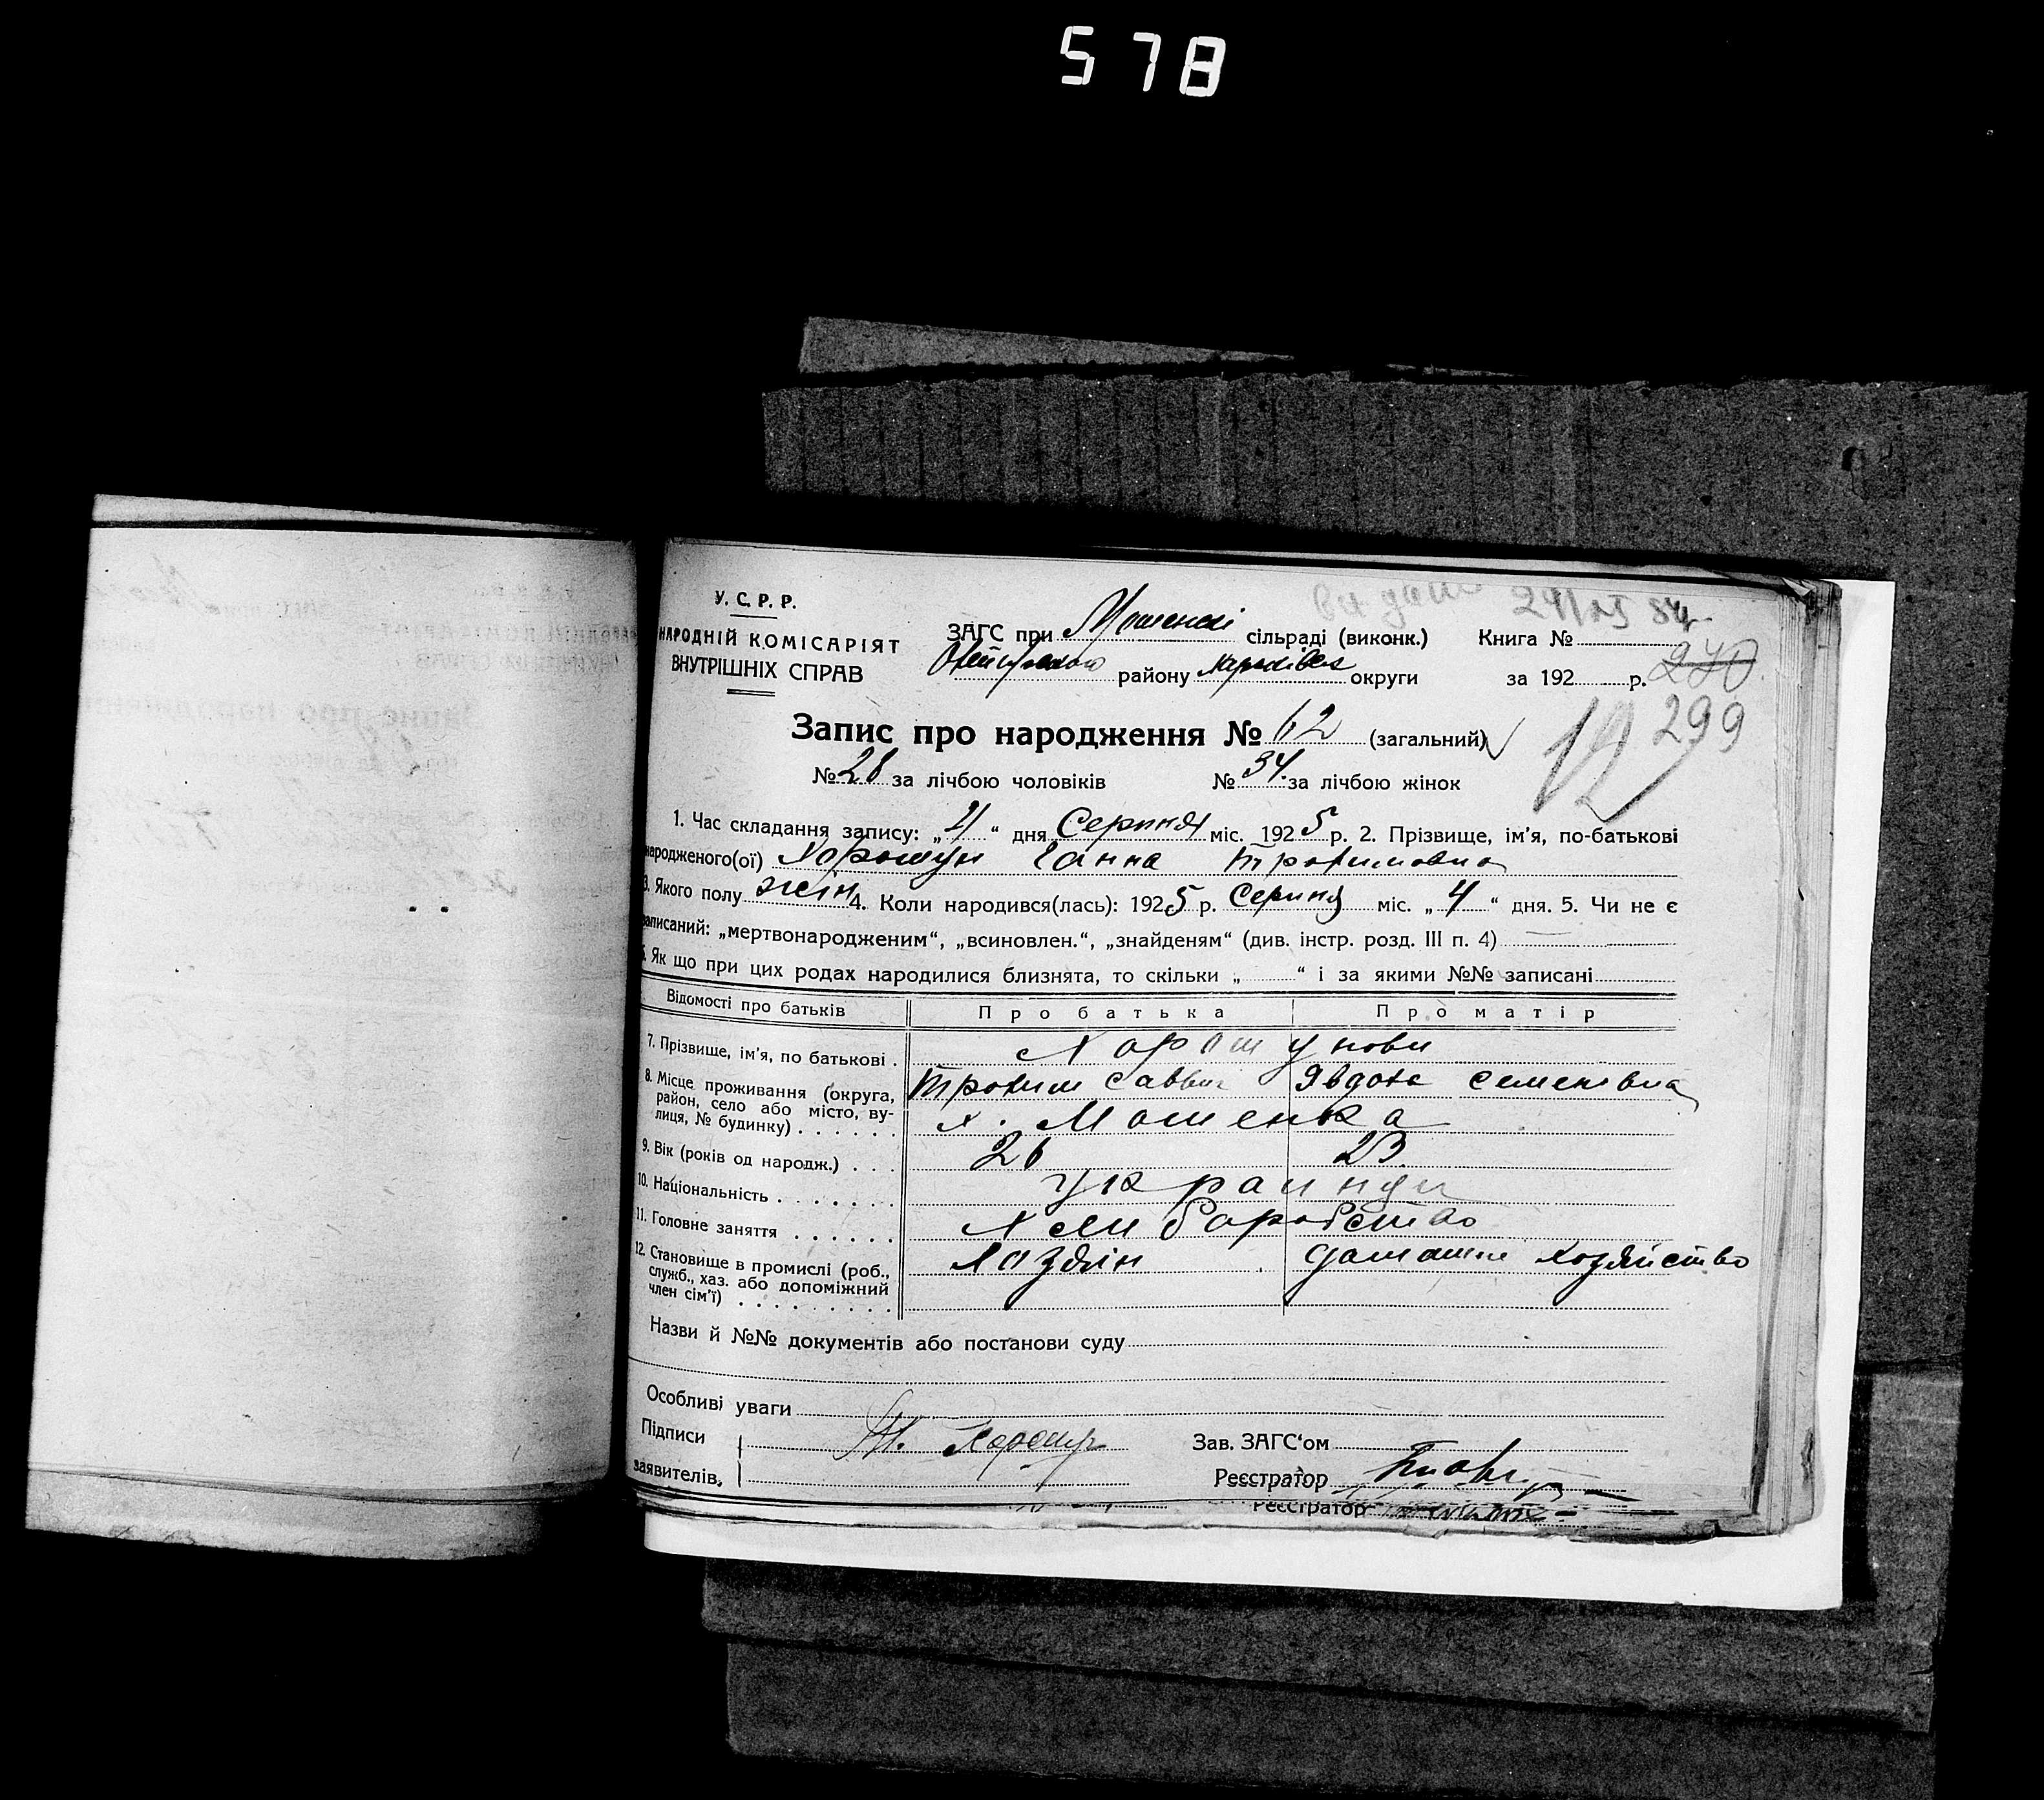 578
У. С. Р. Р.
НАРОДНІЙ КОМІСАРІЯТ
ВНУТРІШНІХ СПРАВ
ЗАГС при Мошенскі сільраді (виконк.) Книга №
району Харківск округи за 192 р. 240
299
12
Запис про народження № 62 (загальний)
№ 28 за лічбою чоловіків № 34 за лічбою жінок
1. Час складання запису: „4“ дня Серпня міс. 1925 р. 2. Прізвище, ім'я, по-батькові
народженого(ої) Хорошун Ганна Трохимовна
3. Якого полу жін 4. Коли народився(лась): 1925 р. Серпня міс. „4“ дня. 5. Чи не є
записаний: „мертвонародженим“, „всиновлен.“, „знайденям“ (див. інстр. розд. III п. 4)
6. Як що при цих родах народилися близнята, то скільки „ “ і за якими №№ записані
Відомості про батьків Про батька Про матір
7. Прізвище, ім'я, по батькові . Хорошунови
Трохим Саввич Явдоха Семенівна
8. Місце проживання (округа, район, село або місто, вулиця, № будинку) . . . . . . х. Мошенка
9. Вік (років од народж.) . . . 26 23
10. Національність . . . . . . . украинци
11. Головне заняття . . . . . . Хлиборобство
12. Становище в промислі (роб., служб., хаз. або допоміжний член сім'ї) . . . . . . . . . Хозяін домашне хозяйство
Назви й №№ документів або постанови суду
Особливі уваги
Підписи Т. Хорошун Зав. ЗАГС'ом
заявителів, Реєстратор
Реєстратор